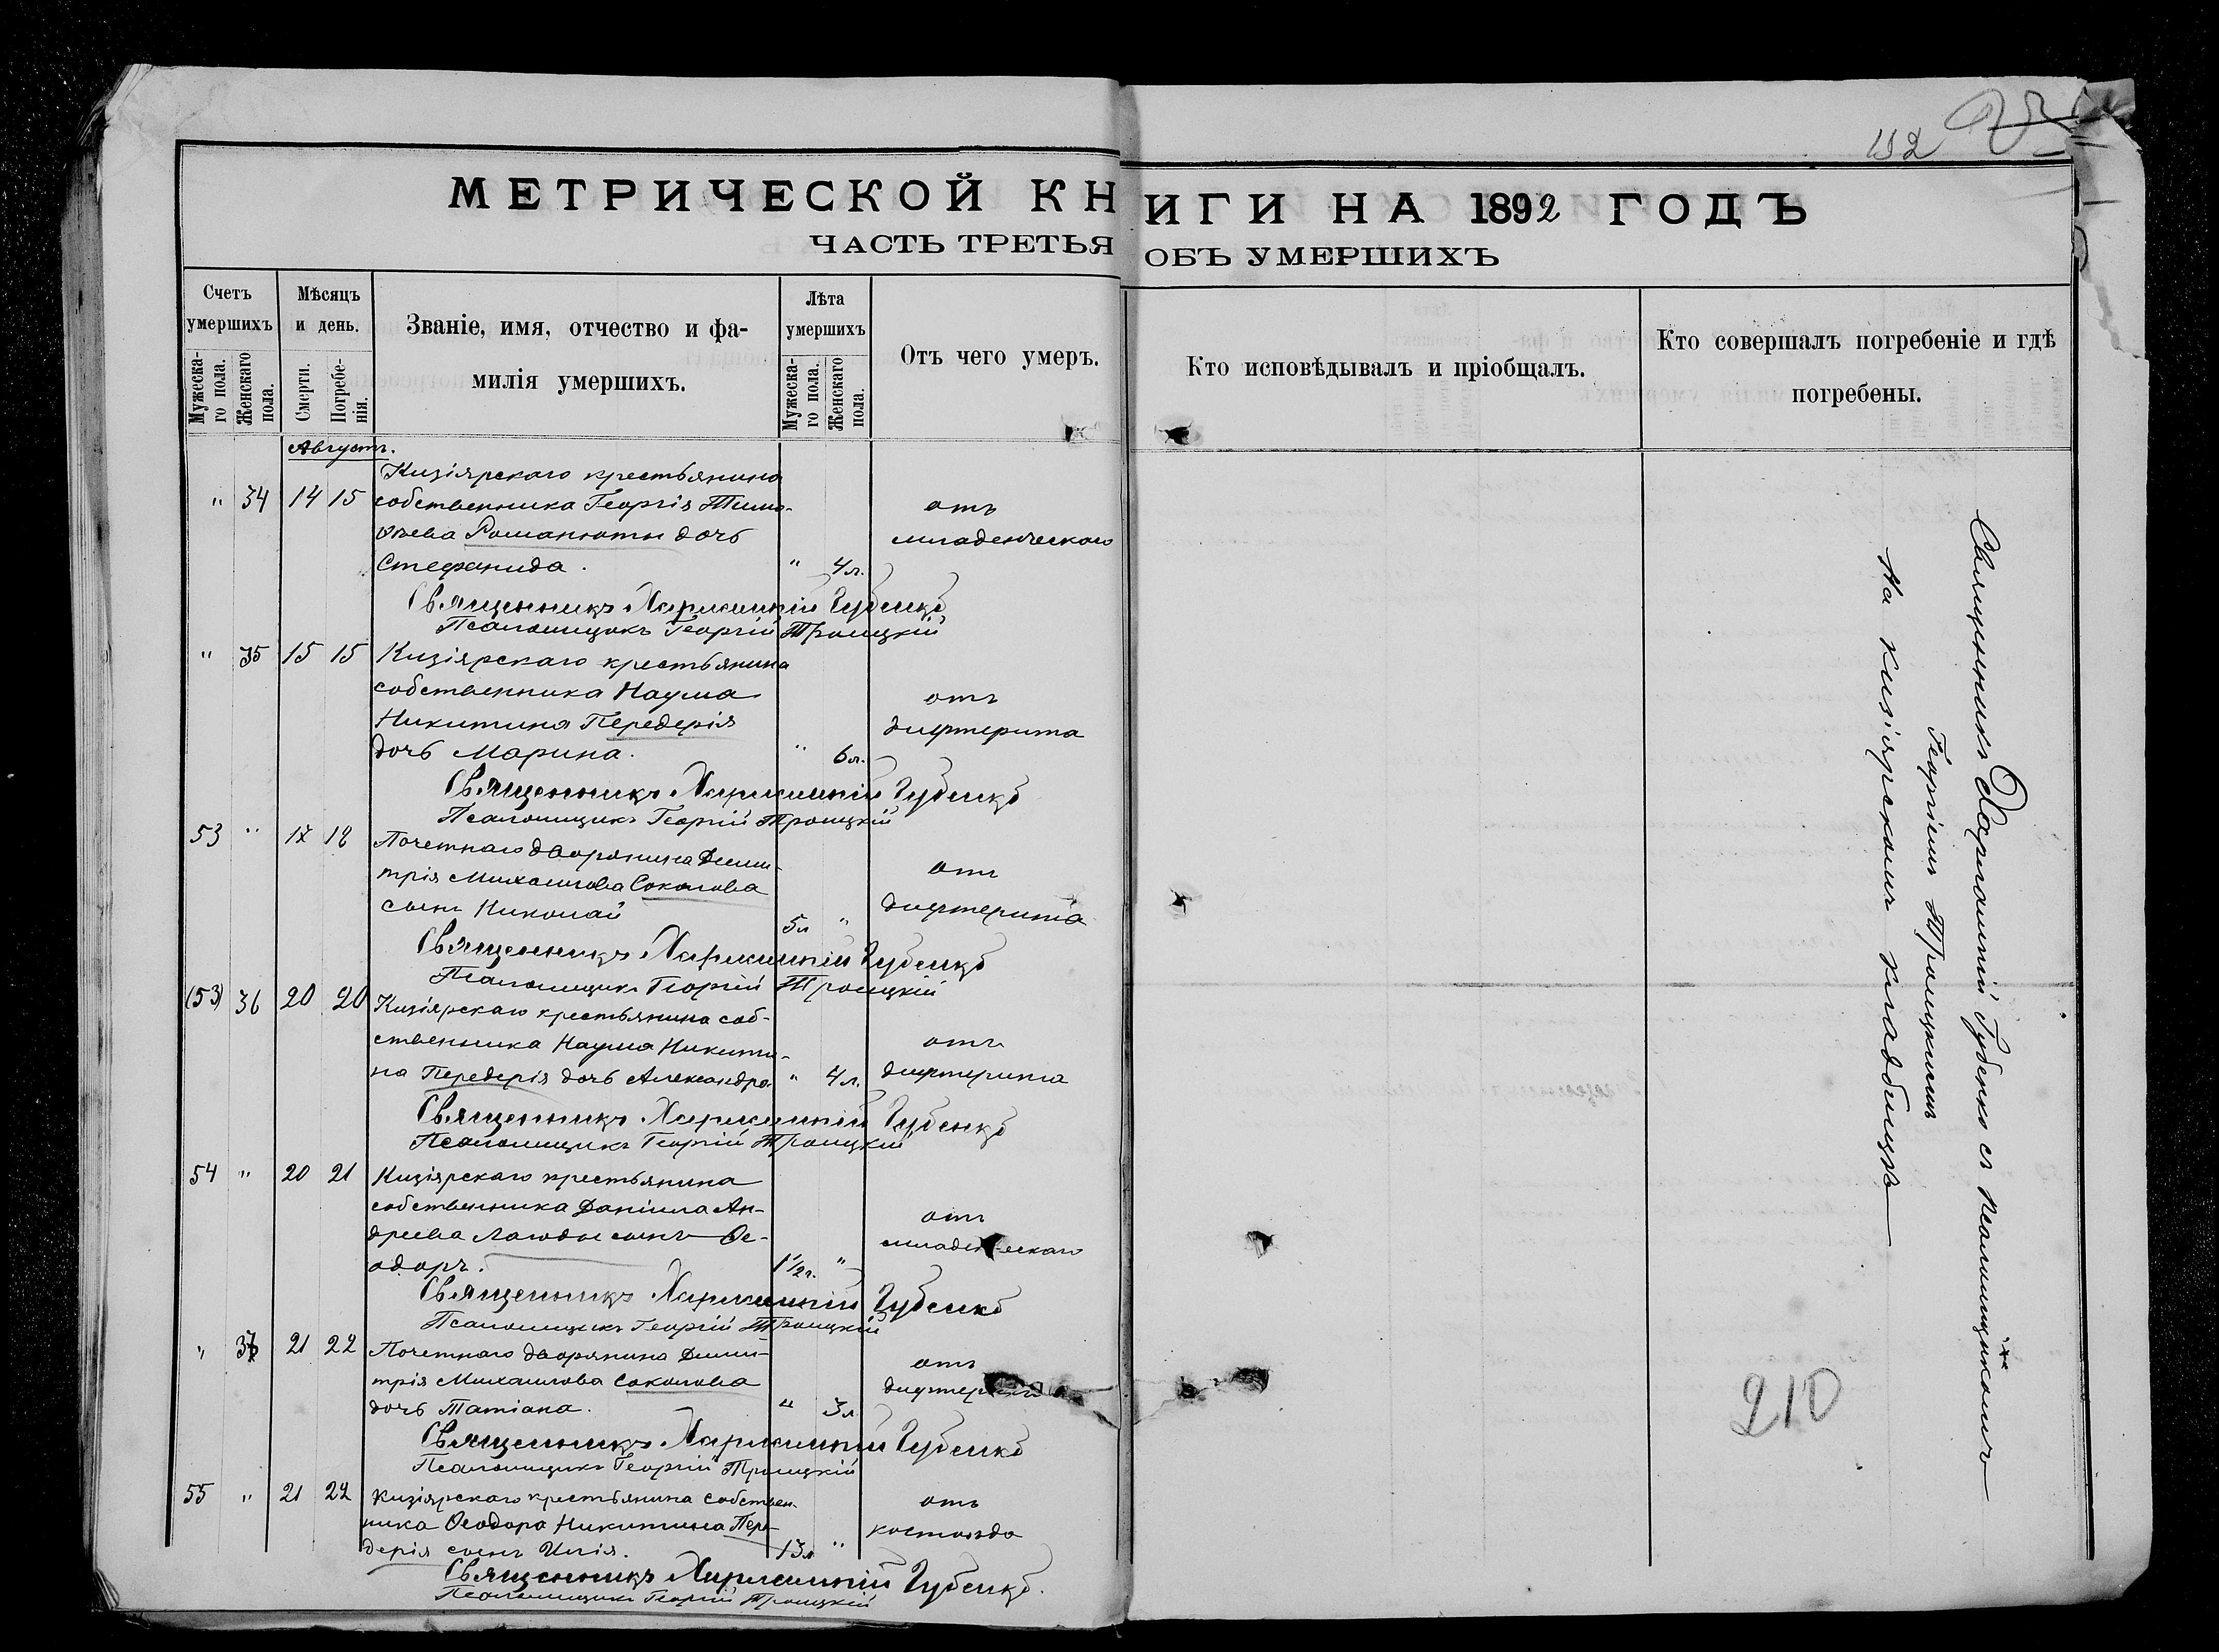 192
МЕТРИЧЕСКОЙ КНИГИ НА 1892 ГОДЪ
ЧАСТЬ ТРЕТЬЯ ОБЪ УМЕРШИХЪ
Счетъ умершихъ
Мужеска-го пола.
Женскаго пола.
Мѣсяцъ и день.
Смерти.
Погребе-нія.
Званіе, имя, отчество и фа-
милія умершихъ.
Лѣта умершихъ
Мужеска-го пола.
Женскаго пола.
Отъ чего умеръ.
Кто исповѣдывалъ и пріобщалъ.
Кто совершалъ погребеніе и гдѣ
погребены.
Августъ.
Кизіярскаго крестьянина
" 34 14 15 собственника Георгія Тимо-
ѳѣева Романюты дочь
Стефанида. " 4 л.
отъ
младенческаго
Священникъ Харлампій Губенко
Псаломщикъ Георгій Троицкій
" 35 15 15 Кизіярскаго крестьянина
собственника Наума
Никитина Передерія
дочь Марина. " 6 л.
отъ
дифтерита
Священникъ Харлампій Губенко
Псаломщикъ Георгій Троицкій
53 " 17 18 Почетнаго дворянина Дими-
трія Михаилова Соколова
сынъ Николай 5 л "
отъ
дифтерита
Священникъ Харлампій Губенко
Псаломщикъ Георгій Троицкій
(53) 36 20 20 Кизіярскаго крестьянина соб-
ственника Наума Никити-
на Передерія дочь Александра " 4 л.
отъ
дифтерита
Священникъ Харлампій Губенко
Псаломщикъ Георгій Троицкій
54 " 20 21 Кизіярскаго крестьянина
собственника Даніила Ан-
дреева сынъ Ѳе-
одоръ. 1 1/2 г. "
отъ
младенческаго
Священникъ Харлампій Губенко
Псаломщикъ Георгій Троицкій
" 37 21 22 Почетнаго дворянина Дими-
трія Михаилова Соколова
дочь Татіана. " 3 л
отъ
дифтерита
Священникъ Харлампій Губенко
Псаломщикъ Георгій Троицкій
55 " 21 22 Кизіярскаго крестьянина собствен-
ника Ѳеодора Никитина Пере-
дерія сынъ Илія. 13 л "
отъ
костоѣда
Священникъ Харлампій Губенко.
Псаломщикъ Георгій Троицкій
Священникъ Харлампій Губенко съ псаломщикомъ
Георгіемъ Троицкимъ
На кизіярскомъ кладбищѣ
210